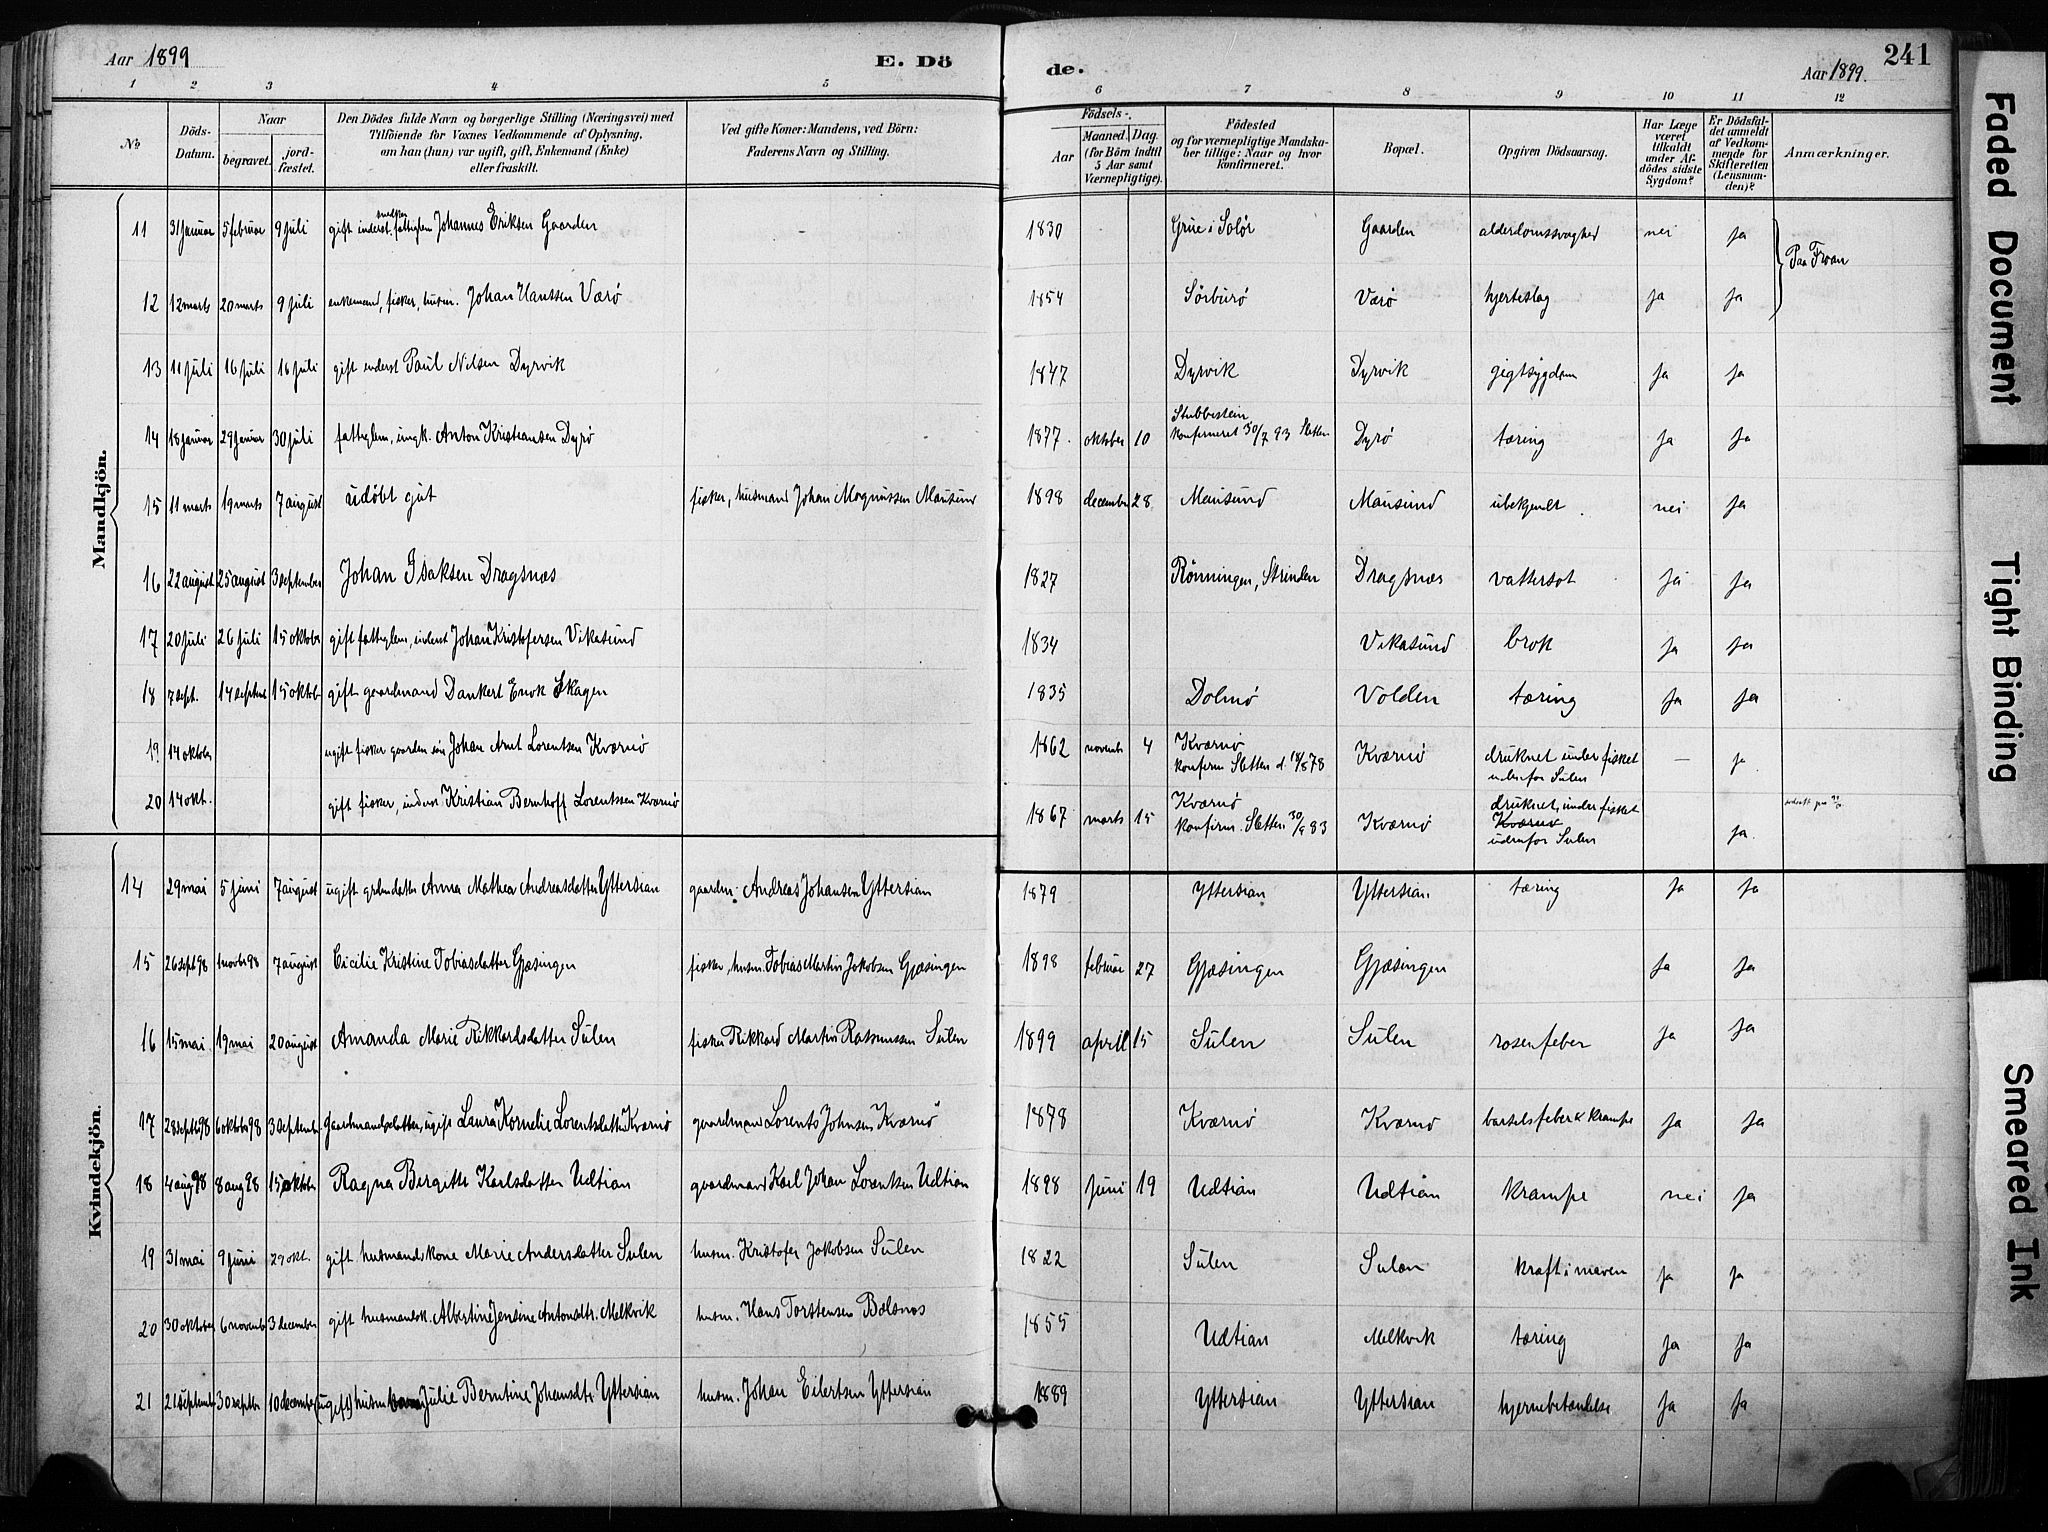 Aar 1899
E. Dö
de.
Aar 1899.
241
1 2 3 4 5 6 7 8 9 10 11 12
№
Döds-Datum.
Naar
begravet.
jord-fæstet.
Den Dödes fulde Navn og borgerlige Stilling (Næringsvei) med
Tilföiende for Voxnes Vedkommende af Oplysning,
om han (hun) var ugift, gift, Enkemand (Enke)
eller fraskilt.
Ved gifte Koner: Mandens, ved Börn:
Faderens Navn og Stilling.
Födsels-
Aar
Maaned.
Dag.
(for Börn indtil
5 Aar samt
Værnepligtige).
Födested
og for værnepligtige Mandska-
ber tillige: Naar og hvor
konfirmeret.
Bopæl.
Opgiven Dödsaarsag.
Har Læge
været
tilkaldt
under Af-
dödes sidste
Sygdom?
Er Dödsfal-
det anmeldt
af Vedkom-
mende for
Skifteretten
(Lensman-
den)?
Anmærkninger.
Mandkjön.
11 31 januar 5 februar 9 juli gift inderst fattiglem Johannes Eriksen Gaarden 1830 Grue i Solör Gaarden alderdomssvaghed nei ja
Paa Froan
12 12 marts 20 marts 9 juli enkemand, fisker, husm. Johan Hanssen Værö 1854 Sörburö Værö hjerteslag ja ja
13 11 juli 16 juli 16 juli gift inderst Paul Nilsen Dyrvik 1847 Dyrvik Dyrvik gigtsygdom ja ja
14 18 januar 29 januar 30 juli fattiglem, ungk. Anton Kristiansen Dyrö 1877 oktober 10 Stubbestein
konfirmeret 30/7 93 Sletten Dyrö tæring ja ja
15 11 marts 19 marts 7 august udöbt gut fisker, husmand Johan Magnussen Mausund 1898 december 28 Mausund Mausund ubekjendt nei ja
16 22 august 25 august 3 september Johan Isaksen Dragsnæs 1827 Rönningen, Strinden Dragsnæs vattersot ja ja
17 20 juli 26 juli 15 oktober gift fattiglem, inderst Johan Kristofersen Vikasund 1834 Vikasund brok ja ja
18 7 sept. 14 septbr 15 oktober gift gaardmand Dankert Enok Skagen 1835 Dolmö Volden tæring ja ja
19 14 oktober ugift fisker gaardm sön Johan Arnt Lorentsen Kværnö 1862 novembr 4 Kværnö
konfirm Sletten d. 18/8 78 Kværnö druknet under fisket
udenfor Sulen — ja
20 14 okt. gift fisker, inderst Kristian Bernhoff Lorentssen Kværnö 1867 marts 15 Kværnö
konfirm. Sletten 30/9 83 Kværnö druknet under fisket
Kværnö
udenfor Sulen ja.
Kvindekjön.
14 29 mai 5 juni 7 august ugift grdmdatter Anna Mathea Andreasdatter Yttersian gaardm: Andreas Johansen Yttersian 1879 Yttersian Yttersian. tæring ja ja
15 26 sept 98 1 novbr 98 7 august Cicilie Kristine Tobiasdatter Gjæsingen fisker, husm. Tobias Martin Jakobsen Gjæsingen 1898 februar 27 Gjæsingen Gjæsingen ja ja
16 15 mai 19 mai 20 august Amanda Marie Rikkardsdatter Sulen fisker Rikkard Martin Rasmussen Sulen 1899 april 15 Sulen Sulen rosenfeber ja ja
17 28 septb 98 6 oktobr 98 3 septembr Gaardmandsdatter, ugift Laura Kornelie Lorentsdatter Kværnö gaardmand Lorents Johnsen Kværnö 1878 Kværnö Kværnö barselsfeber & krampe ja ja
18 4 aug 98 8 aug 98 15 oktober Ragna Bergitte Karlsdatter Udtian gaardmand Karl Johan Lorentsen Udtian 1898 juni 19 Udtian Udtian krampe nei ja
19 31 mai 9 juni 29 okt. gift husmandskone Marie Andersdatter Sulen husm. Kristofer Jakobsen Sulen 1822 Sulen Sulen kræft i maven ja ja
20 30 oktober 6 novembr 3 december gift husmandsk. Albertine Jensine Antonsdtr. Melkvik husm. Hans Torstensen Balsnes 1855 Udtian Melkvik tæring ja ja
21 21 septembr 30 septbr 10 december (ugift) husm Julie Berntine Johansdtr Yttersian husm. Johan Eilertsen Yttersian 1889 Yttersian Yttersian hjernebetændelse ja ja
Faded Document
Tight Binding
Smeared Ink